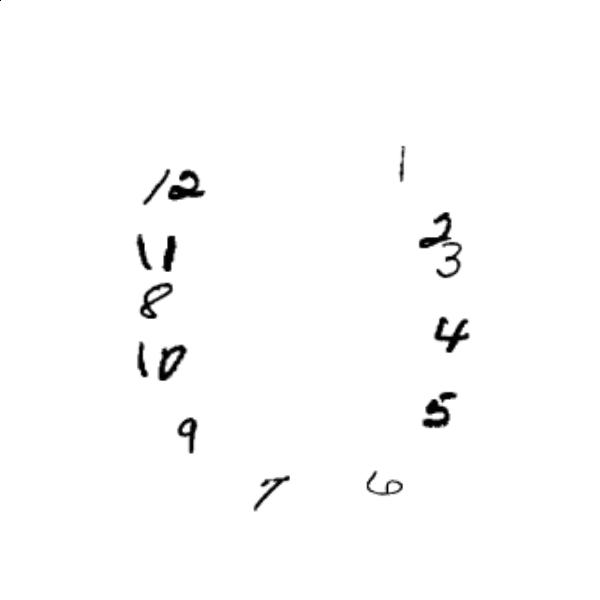 1
12
2
11
3
8
4
10
5
9
7 6